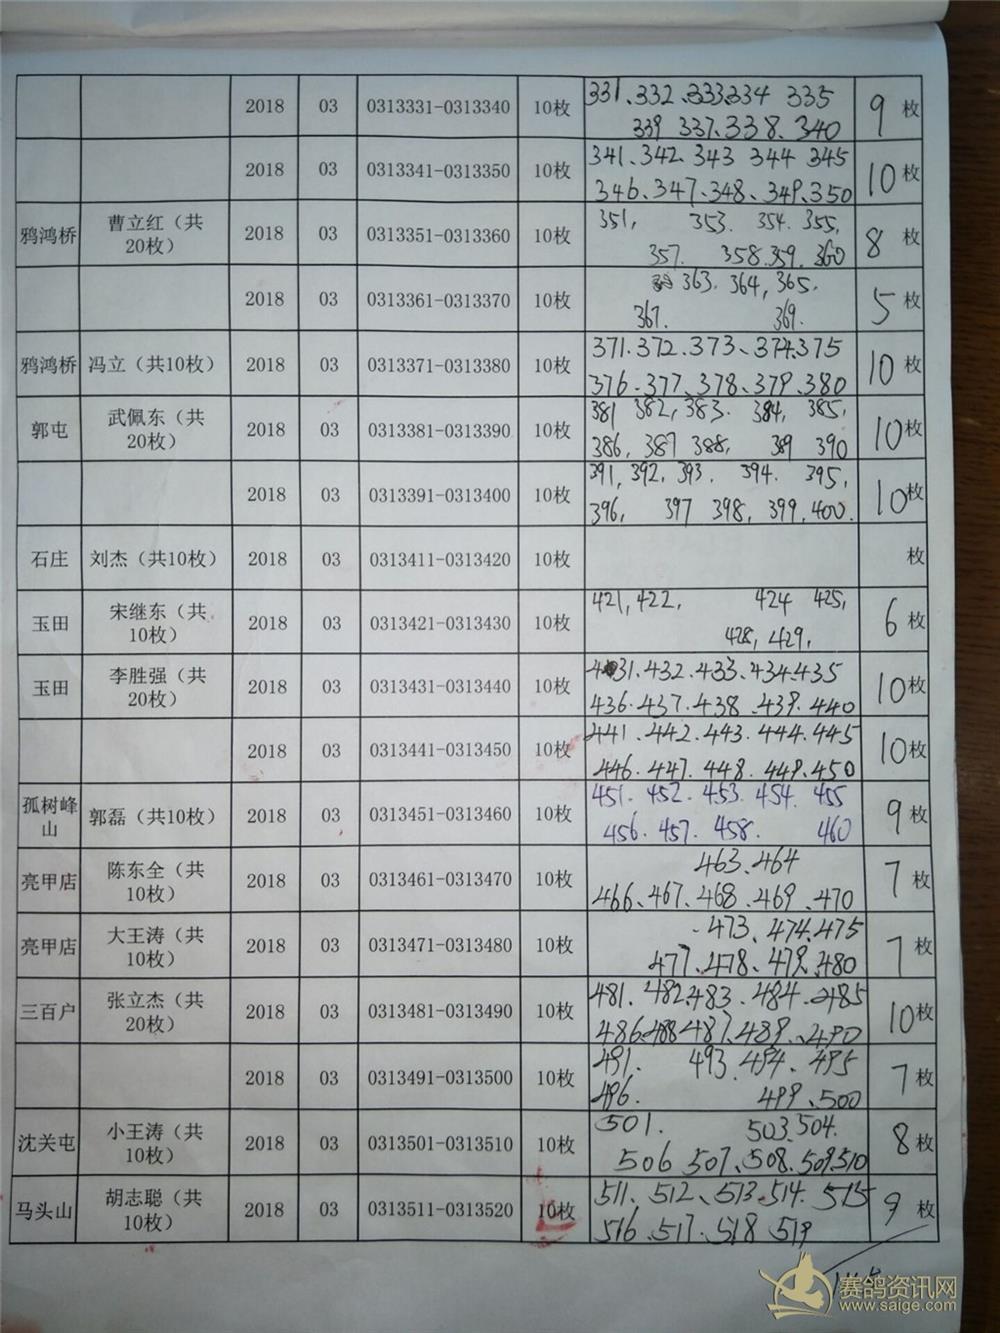 2018 03 0313331-0313340 10枚 331、332、333、334 335 9枚
339 337、338、340
2018 03 0313341-0313350 10枚 341、342、343 344 345 10枚
346、347、348、349、350
鸦鸿桥 曹立红（共 2018 03 0313351-0313360 10枚 351, 353. 354. 355, 8枚
20枚） 357. 358.359, 360
2018 03 0313361-0313370 10枚 363. 364, 365. 5枚
367. 369.
鸦鸿桥 冯立（共10枚） 2018 03 0313371-0313380 10枚 371.372.373、374.375 10枚
376.377、378、379、380
郭屯 武佩东（共 2018 03 0313381-0313390 10枚 381 382, 383. 384, 385, 10枚
20枚） 386, 387 388, 389 390
2018 03 0313391-0313400 10枚 391, 392, 393. 394. 395, 10枚
396, 397 398, 399, 400.
石庄 刘杰（共10枚） 2018 03 0313411-0313420 10枚 枚
玉田 宋继东（共 2018 03 0313421-0313430 10枚 421, 422, 424 425, 6枚
10枚） 428, 429,
玉田 李胜强（共 2018 03 0313431-0313440 10枚 431.432.433、434.435 10枚
20枚） 436.437.438.439.440
2018 03 0313441-0313450 10枚 441.442.443.444.445 10枚
446.447.448.449.450
孤树峰
山 郭磊（共10枚） 2018 03 0313451-0313460 10枚 451. 452. 453. 454. 455 9枚
456. 457. 458. 460
亮甲店 陈东全（共 2018 03 0313461-0313470 10枚 463、464 7枚
10枚） 466、467、468.469、470
亮甲店 大王涛（共 2018 03 0313471-0313480 10枚 473、474.475 7枚
10枚） 477、478、479、480
三百户 张立杰（共 2018 03 0313481-0313490 10枚 481. 482.483. 484. 485 10枚
20枚） 486.488 487.489、490
2018 03 0313491-0313500 10枚 491. 493. 494. 495 7枚
496. 499、500
沈关屯 小王涛（共 2018 03 0313501-0313510 10枚 501. 503.504. 8枚
10枚） 506 507、508.509.510
马头山 胡志聪（共 2018 03 0313511-0313520 10枚 511. 512、513.514. 515 9枚
10枚） 516.517.518.519
赛鸽资讯网
www.saige.com